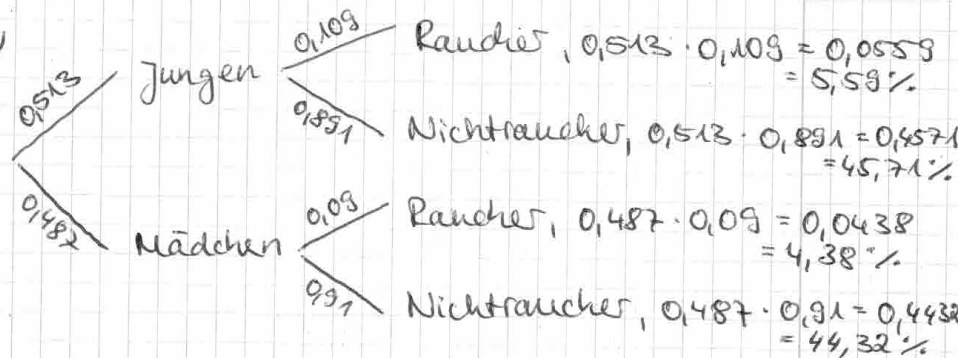 )
0,109
Raucher, 0,513 · 0,109 = 0,0559
= 5,59 %
0,513
Jungen
0,891
Nichtraucher, 0,513 · 0,891 = 0,4571
= 45,71 %
0,487
Mädchen
0,09
Raucher, 0,487 · 0,09 = 0,0438
= 4,38 %
0,91
Nichtraucher, 0,487 · 0,91 = 0,4432
= 44,32 %